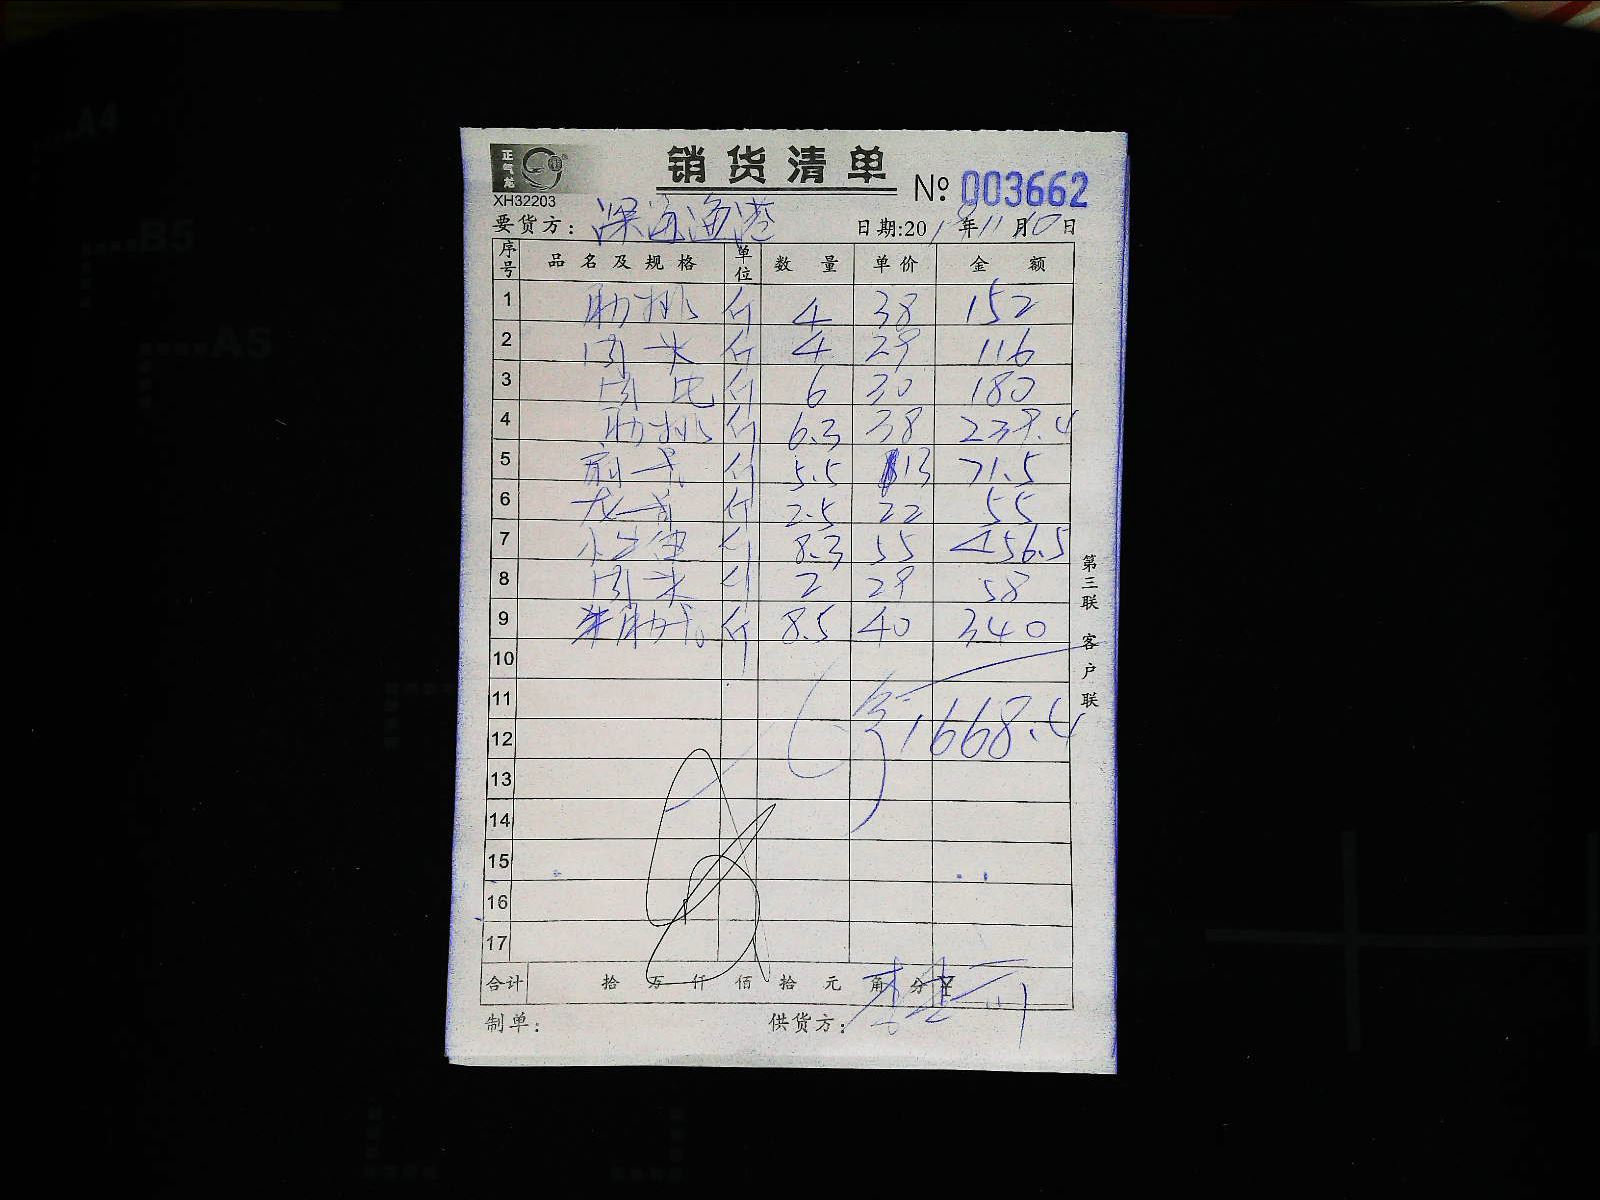 正气龙
XH32203
销货清单
№ 003662
要货方：深海渔港 日期:20 年11月10日
序号 品名及规格 单位 数量 单价 金额
1 肋排 斤 4 38 152
2 肉米 斤 4 29 116
3 肉 斤 6 30 180
4 肋排 斤 6.3 38 239.4
5 斤 5.5 13 71.5
6 龙骨 斤 2.5 22 55
7 斤 8.3 55 456.5
8 肉米 斤 2 29 58
9 斤 8.5 40 340
10
11
12 1668.4
13
14
15
16
17
合计 拾 万 仟 佰 拾 元 角 分 ¥
制单: 供货方:
第三联 客户联
A4
B5
A5